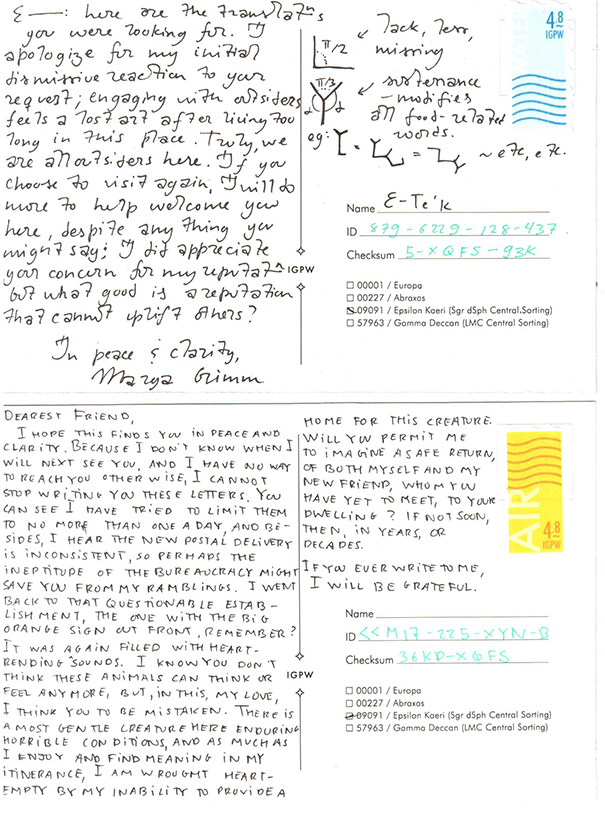 E——: here are the translatⁿs
you were looking for. I
apologize for my initial
dismissive reaction to your
request; engaging with outsiders
feels a lost art after living too
long in this place. Truly, we
are all outsiders here. If you
choose to visit again, I will do
more to help welcome you
here, despite any thing you
might say; I did appreciate
your concern for my reputatⁿ
but what good is a reputation
that cannot uplift others?
In peace & clarity,
Marya Grimm
π/2
lack, less,
missing
π/3
α α
sustenance
– modifies
all food-related
words.
eg:
~ etc, etc.
WATER
4.8
IGPW
IGPW
Name E-Te'k
ID 879-6229-128-437
Checksum 5-XQFS-93K
00001 / Europa
00227 / Abraxas
09091 / Epsilon Kaeri (Sgr dSph Central.Sorting)
57963 / Gamma Deccan (LMC Central Sorting)
DEAREST FRIEND,
I HOPE THIS FINDS YOU IN PEACE AND
CLARITY. BECAUSE I DON'T KNOW WHEN I
WILL NEXT SEE YOU, AND I HAVE NO WAY
TO REACH YOU OTHERWISE, I CANNOT
STOP WRITING YOU THESE LETTERS. YOU
CAN SEE I HAVE TRIED TO LIMIT THEM
TO NO MORE THAN ONE A DAY, AND BE-
SIDES, I HEAR THE NEW POSTAL DELIVERY
IS INCONSISTENT, SO PERHAPS THE
INEPTITUDE OF THE BUREAUCRACY MIGHT
SAVE YOU FROM MY RAMBLINGS. I WENT
BACK TO THAT QUESTIONABLE ESTAB-
LISHMENT, THE ONE WITH THE BIG
ORANGE SIGN OUT FRONT, REMEMBER?
IT WAS AGAIN FILLED WITH HEART-
RENDING SOUNDS. I KNOW YOU DON'T
THINK THESE ANIMALS CAN THINK OR
FEEL ANYMORE, BUT, IN THIS, MY LOVE,
I THINK YOU TO BE MISTAKEN. THERE IS
A MOST GENTLE CREATURE HERE ENDURING
HORRIBLE CONDITIONS, AND AS MUCH AS
I ENJOY AND FIND MEANING IN MY
ITINERANCE, I AM WROUGHT HEART-
EMPTY BY MY INABILITY TO PROVIDE A
HOME FOR THIS CREATURE.
WILL YOU PERMIT ME
TO IMAGINE A SAFE RETURN,
OF BOTH MYSELF AND MY
NEW FRIEND, WHOM YOU
HAVE YET TO MEET, TO YOUR
DWELLING? IF NOT SOON,
THEN, IN YEARS, OR
DECADES.
IF YOU EVER WRITE TO ME,
I WILL BE GRATEFUL.
AIR
4.8
IGPW
IGPW
Name
ID <<M17-225-XYN-B
Checksum 36KD-XQFS
00001 / Europa
00227 / Abraxas
09091 / Epsilon Kaeri (Sgr dSph Central Sorting)
57963 / Gamma Deccan (LMC Central Sorting)